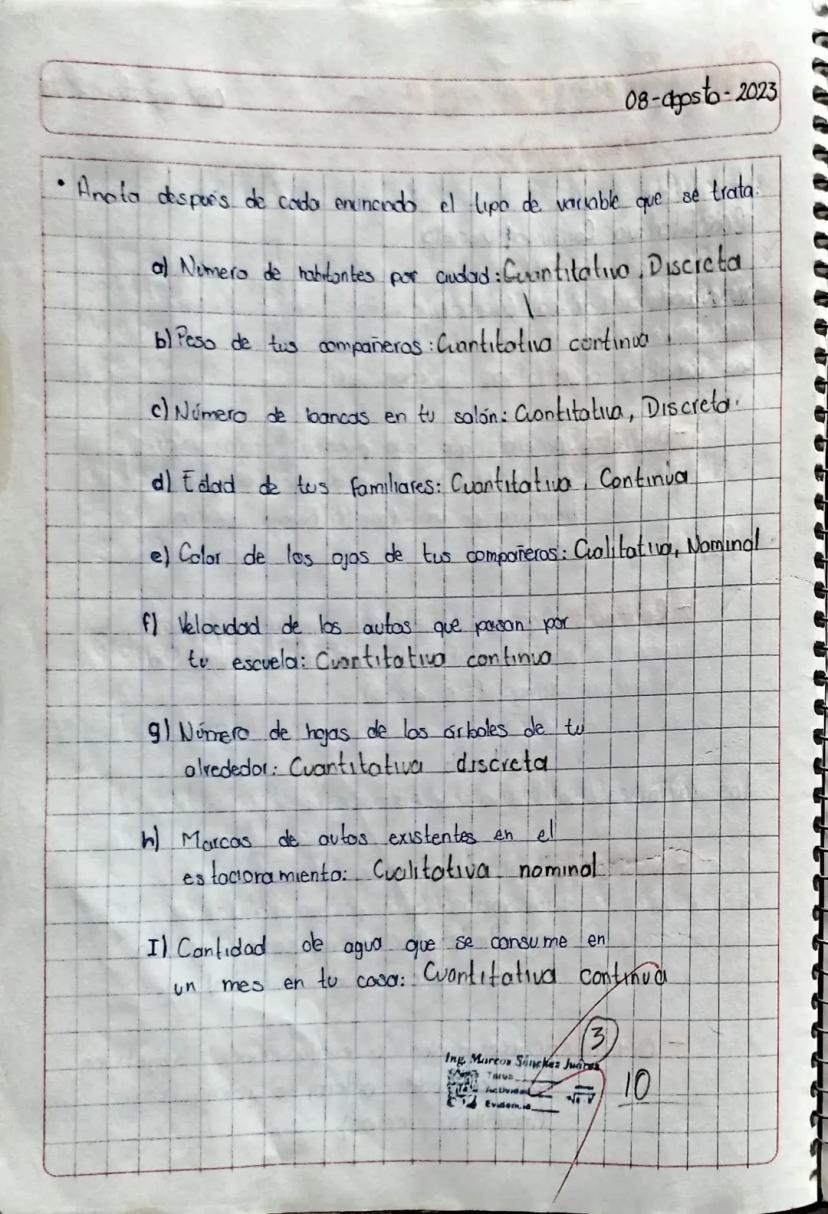 08-agosto-2023
• Anota después de cada enunciado el tipo de variable que se trata:
a) Número de habitantes por ciudad: Cuantitativa, Discreta
b) Peso de tus compañeros: Cuantitativa continua
c) Número de bancas en tu salón: Cuantitativa, Discreta.
d) Edad de tus familiares: Cuantitativa, Continua
e) Color de los ojos de tus compañeros: Cualitativa, Nominal
f) Velocidad de los autos que pasan por
tu escuela: Cuantitativa continua
g) Número de hojas de los árboles de tu
alrededor: Cuantitativa discreta
h) Marcas de autos existentes en el
estacionamiento: Cualitativa nominal
I) Cantidad de agua que se consume en
un mes en tu casa: Cuantitativa continua
3
Ing. Marcos Sánchez Juárez
Tarea
Actividad
Evidencia
10